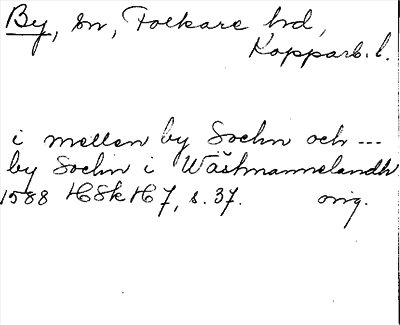 By, sn, Folkare hd,
Kopparb. l.
i mellen by Sochn och ---
by Sochn i Wästmannelandh
1588 HSk H 7, s. 37. orig.